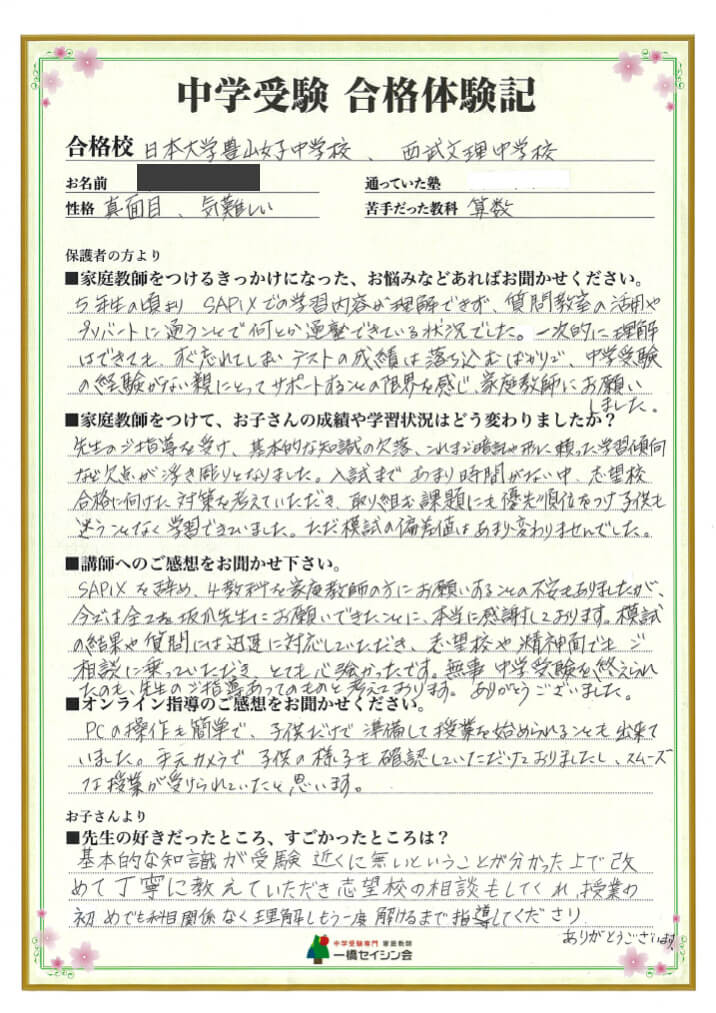 中学受験 合格体験記
合格校 日本大学豊山女子中学校、西武文理中学校
お名前
通っていた塾
性格 真面目、気難しい
苦手だった教科 算数
保護者の方より
■家庭教師をつけるきっかけになった、お悩みなどあればお聞かせください。
5年生の頃より SAPIXでの学習内容が理解できず、質問教室の活用や
プリバートに通うことで何とか通塾できている状況でした。一次的に理解
はできても、すぐ忘れてしまいテストの成績は落ち込むばかりで、中学受験
の経験がない親にとってサポートすることの限界を感じ、家庭教師にお願い
しました。
■家庭教師をつけて、お子さんの成績や学習状況はどう変わりましたか？
先生のご指導を受け、基本的な知識の欠落、これまで暗記や形に頼った学習傾向
など欠点が浮き彫りとなりました。入試まであまり時間がない中、志望校
合格に向けた対策を考えていただき、取り組む課題にも優先順位をつけ子供も
迷うことなく学習できていました。ただ模試の偏差値はあまり変わりませんでした。
■講師へのご感想をお聞かせ下さい。
SAPIXを辞め、4教科を家庭教師の方にお願いすることの不安もありましたが、
今では全てを先生にお願いできたことに、本当に感謝しております。模試
の結果や質問には迅速に対応していただき、志望校や精神面でもご
相談に乗っていただき、とても心強かったです。無事中学受験を終えられ
たのも、先生のご指導あってのものと考えております。ありがとうございました。
■オンライン指導のご感想をお聞かせください。
PCの操作も簡単で、子供だけで準備して授業を始められることも出来て
いました。手元カメラで子供の様子も確認していただけておりましたし、スムーズ
な授業が受けられていたと思います。
お子さんより
■先生の好きだったところ、すごかったところは？
基本的な知識が受験近くに無いということが分かった上で改
めて丁寧に教えていただき志望校の相談もしてくれ、授業の
初めでも科目関係なく理解しもう一度解けるまで指導してくださり
ありがとうございます。
中学受験専門 家庭教師
一橋セイシン会